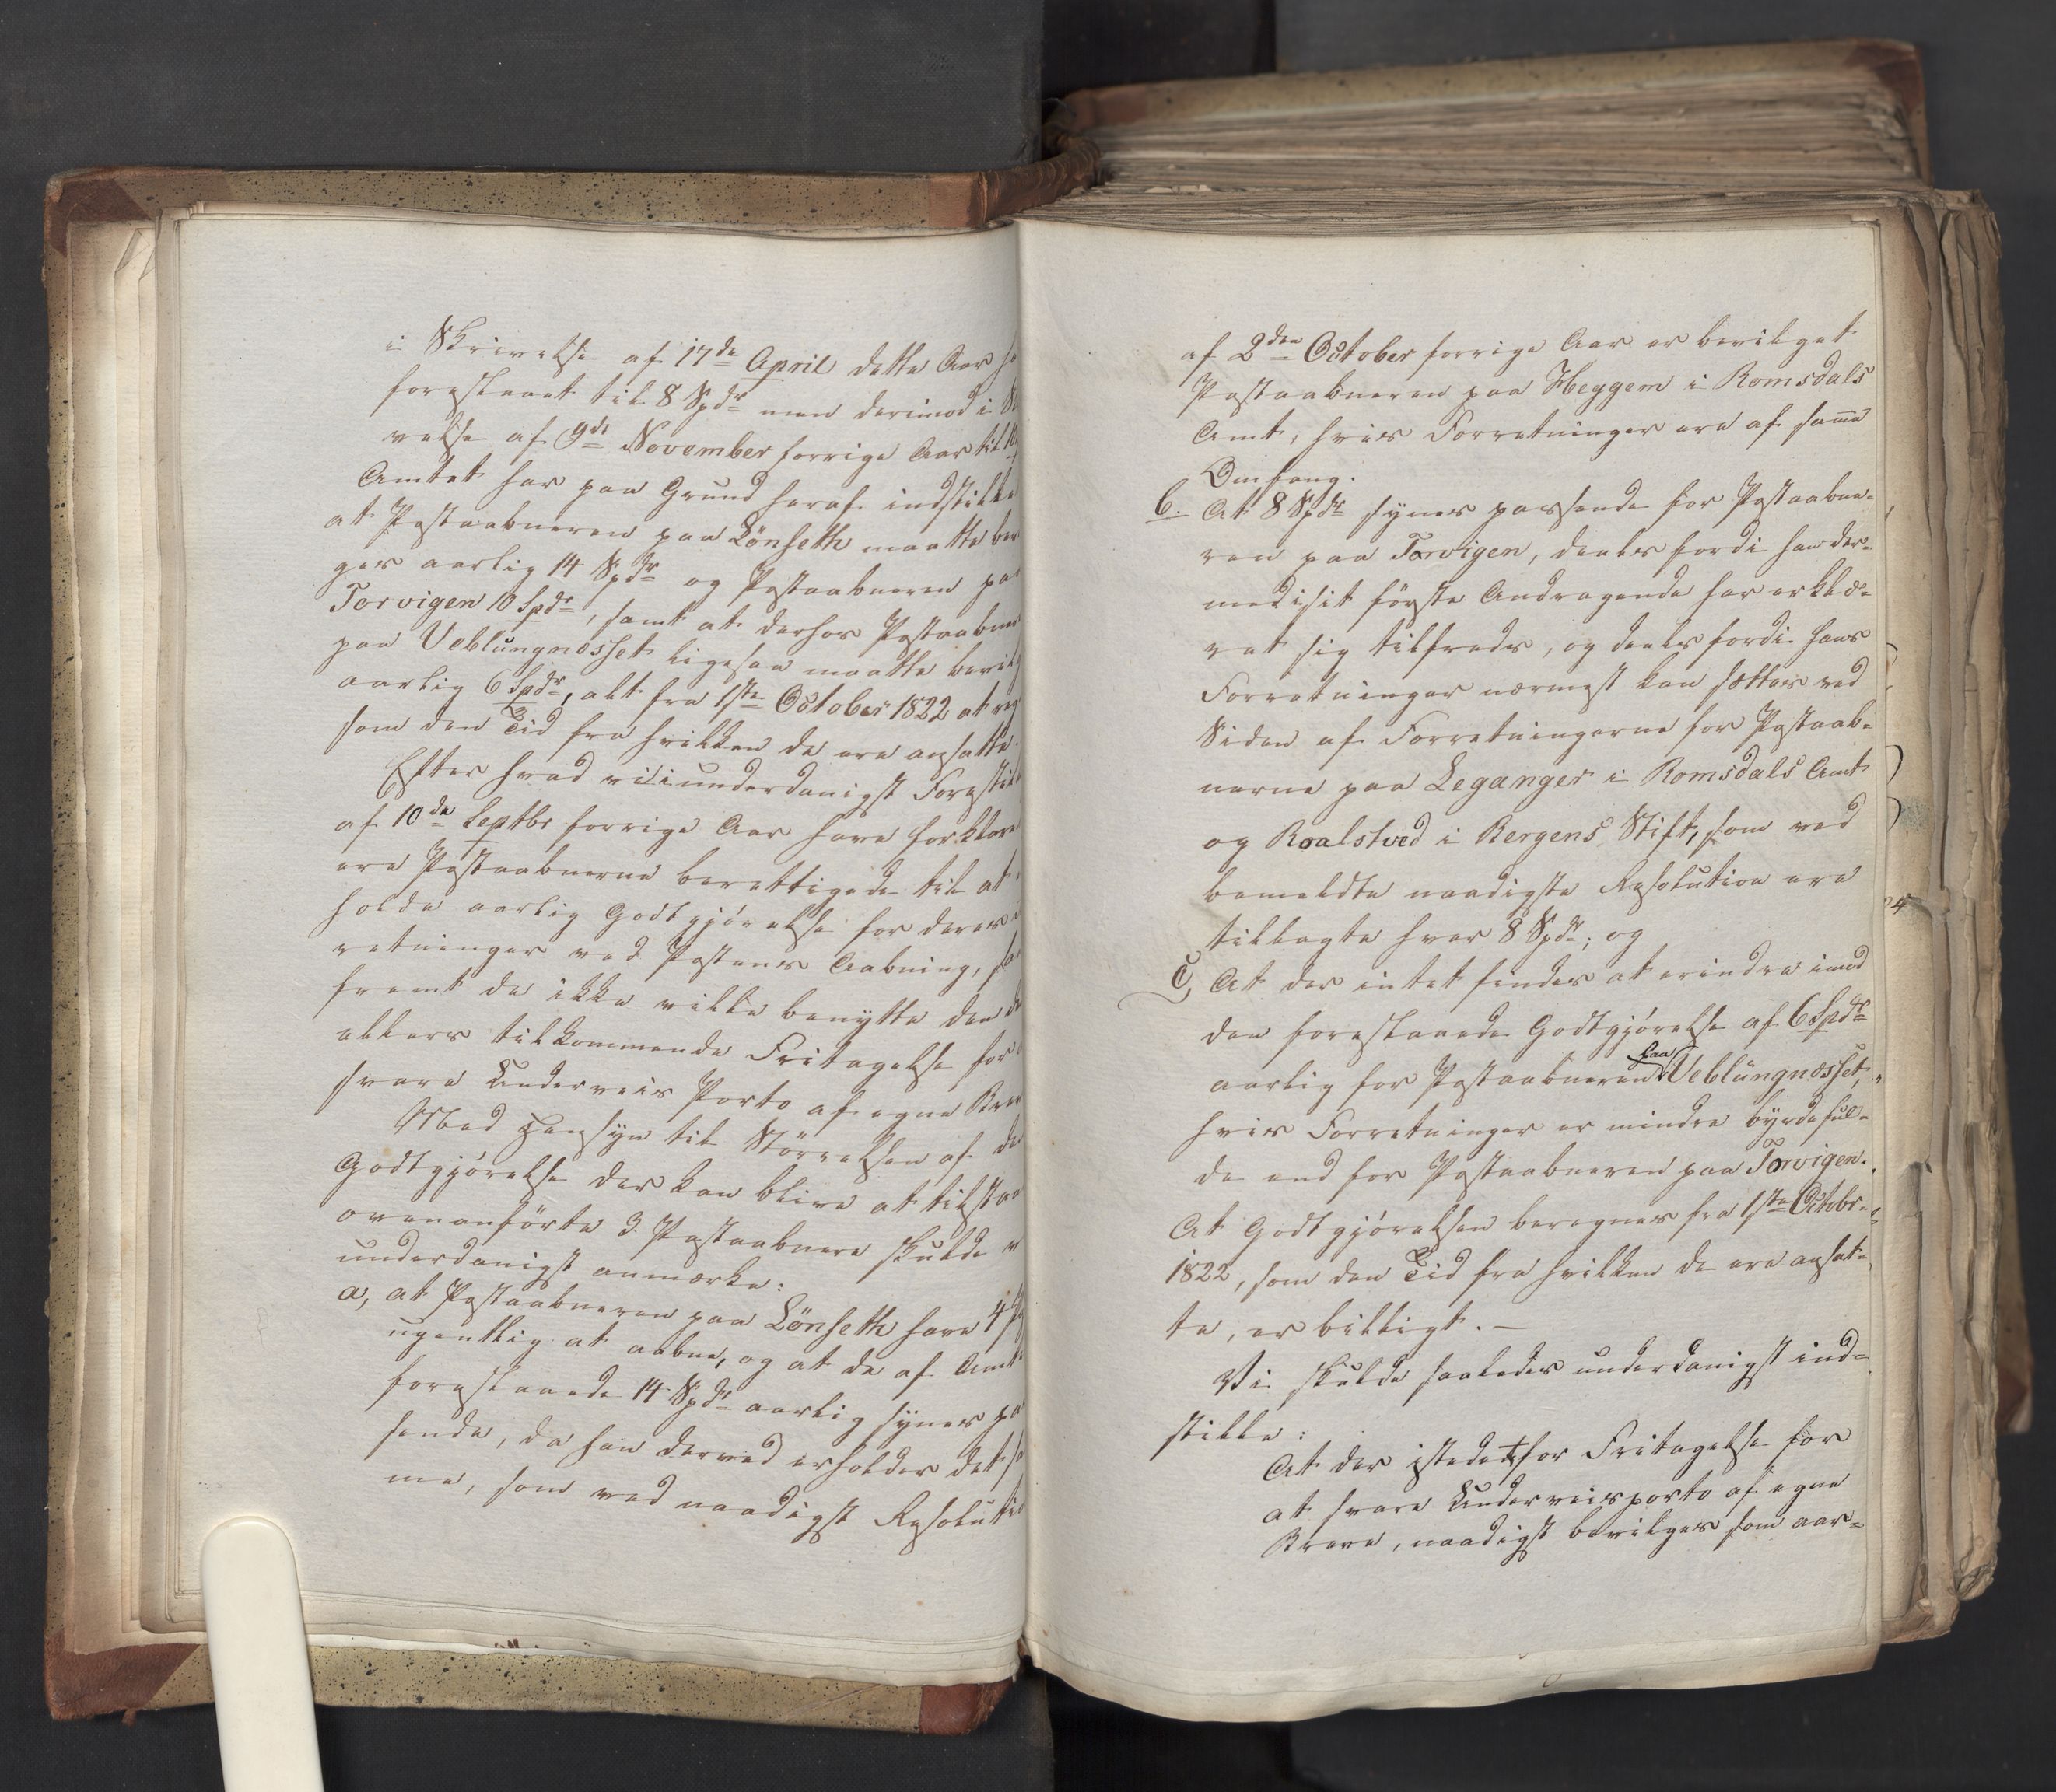 i Skrivelse af 17de April dette Aar ha
foreslaaet til 8 Spdr men derimod i Sk
velse af 9de November forrige Aar til 10
Amtet har paa Grund heraf indstillet
at Postaabneren paa Lönseth maatte bev
ges aarlig 14 Spdr og Postaabneren paa
Torvigen 10 Spdr, samt at derhos Postaabner
paa Veblungnæsset ligesaa maatte bevilg
aarlig 6 Spdr, alt fra 1ste October 1822 at reg
som den Tid fra hvilken de ere ansatte.
Efter hvad vi i underdanigst Forestil
af 10de Septbr forrige Aar have forklaret
ere Postaabnerne berettigede til at
holde aarlig Godtgjørelse for deres
retninger ved Postens Aabning, saa
fremt de ikke ville benytte den de
ellers tilkommende Fritagelse for
svare Underveis Porto af egne Brev
Med Hensyn til Störrelsen af de
Godtgjörelse der kan blive at tilstaa
ovenanförte 3 Postaabnere skulde v
underdanigst anmærke:
a, at Postaabneren paa Lönseth have 4
ugentlig at aabne, og at de af Amt
foreslaaede 14 Spdr aarlig synes pas
sende, da han derved erholder det sa
me, som ved naadigst Resolutio
af 2den October forrige Aar er bevilget
Postaabneren paa Heggem i Romsdals
Amt, hvis Forretninger ere af samme
Omfang.
b. At 8 Spdr synes passende for Postaabne-
ren paa Torvigen, deels fordi han der-
med i sit første Andragende har erklæ-
ret sig tilfreds, og deels fordi hans
Forretninger nærmest kan sættes ved
Siden af Forretningerne for Postaab-
nerne paa Leganger i Romsdals Amt
og Roalstved i Bergens Stift, som ved
bemeldte naadigste Resolution ere
tillagte hver 8 Spdr; og
C, At der intet findes at erindre imod
den foreslaaede Godtgjørelse af 6 Spdr
aarlig for Postaabneren paa Veblungnæsset,
hvis Forretninger er mindre byrdeful-
de end for Postaabneren paa Torvigen.
At Godtgjørelsen beregnes fra 1ste Octobr
1822, som den Tid fra hvilken de ere ansat-
te, er billigt. —
Vi skulde saaledes underdanigst ind-
stille:
At der istedet for Fritagelse for
at svare Underveisporto af egne
Breve, naadigst bevilges som aar-